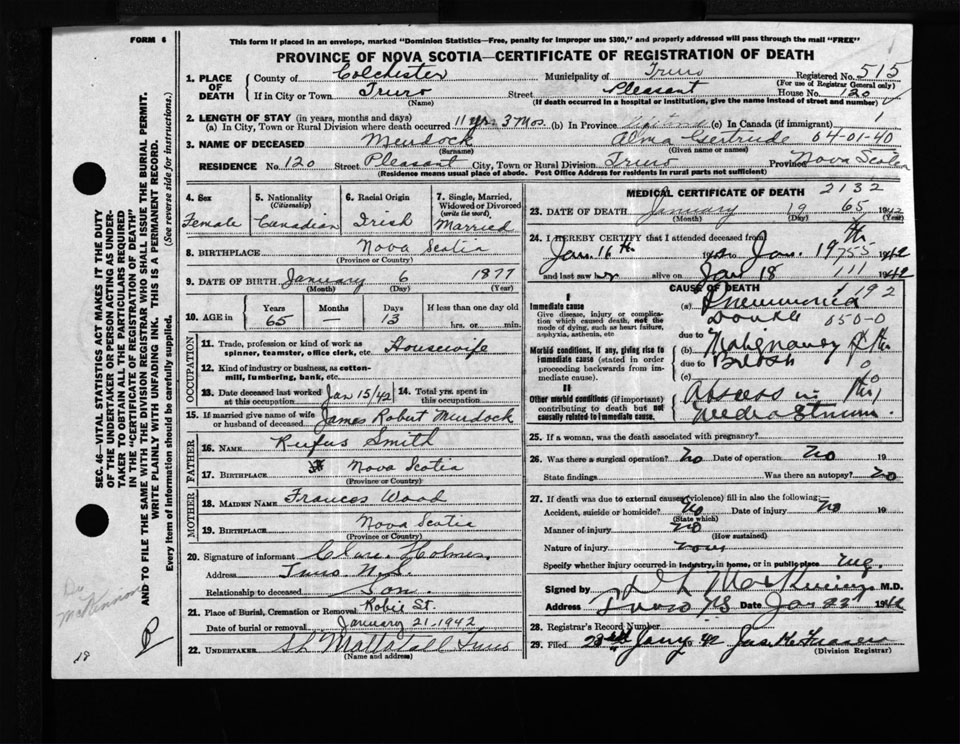 FORM 6
This form if placed in an envelope, marked "Dominion Statistics—Free, penalty for improper use $300," and properly addressed will pass through the mail "FREE"
PROVINCE OF NOVA SCOTIA—CERTIFICATE OF REGISTRATION OF DEATH
1. PLACE OF DEATH
County of Colchester Municipality of Truro Registered No. 515
(For use of Registrar General only)
If in City or Town Truro Street Pleasant House No. 120
(Name) (If death occurred in a hospital or institution, give the name instead of street and number)
2. LENGTH OF STAY (in years, months and days)
(a) In City, Town or Rural Division where death occurred 11 yrs 3 Mos. (b) In Province (c) In Canada (if immigrant) 1
3. NAME OF DECEASED Murdock Alma Gertrude 04-01-40
(Surname) (Given name or names)
RESIDENCE No. 120 Street Pleasant City, Town or Rural Division Truro Province Nova Scotia
(Residence means usual place of abode. Post Office Address for residents in rural parts not sufficient)
4. Sex Female
5. Nationality (Citizenship) Canadian
6. Racial Origin Irish
7. Single, Married, Widowed or Divorced (write the word) Married
8. BIRTHPLACE Nova Scotia
(Province or Country)
9. DATE OF BIRTH January 6 1877
(Month) (Day) (Year)
10. AGE in Years Months Days If less than one day old
65 — 13 hrs. or min.
OCCUPATION
11. Trade, profession or kind of work as spinner, teamster, office clerk, etc. Housewife
12. Kind of industry or business, as cotton-mill, lumbering, bank, etc.
13. Date deceased last worked at this occupation Jan 15/42
14. Total yrs. spent in this occupation
15. If married give name of wife or husband of deceased James Robert Murdock
FATHER
16. NAME Rufus Smith
17. BIRTHPLACE Nova Scotia
(Province or Country)
MOTHER
18. MAIDEN NAME Frances Wood
19. BIRTHPLACE Nova Scotia
(Province or Country)
20. Signature of informant Holmes
Address Truro N.S.
Relationship to deceased Son.
21. Place of Burial, Cremation or Removal Robie St.
Date of burial or removal January 21, 1942
22. UNDERTAKER Truro
(Name and address)
MEDICAL CERTIFICATE OF DEATH 2132
23. DATE OF DEATH January 19 65 1942
(Month) (Day) (Year)
24. I HEREBY CERTIFY that I attended deceased from
Jan. 16th to Jan. 19th 755 1942
and last saw alive on Jan 18 111 1942
CAUSE OF DEATH 192
I
Immediate cause
Give disease, injury or complication which caused death, not the mode of dying, such as heart failure, asphyxia, asthenia, etc
(a) Pneumonia
Double 050-0
due to
Morbid conditions, if any, giving rise to immediate cause (stated in order proceeding backwards from immediate cause).
(b) Malignancy Rt.
due to Breast
(c)
II
Other morbid conditions (if important) contributing to death but not causally related to immediate cause.
Abscess in
25. If a woman, was the death associated with pregnancy?
26. Was there a surgical operation? No Date of operation No 19
State findings Was there an autopsy? No
27. If death was due to external causes (violence) fill in also the following:
Accident, suicide or homicide? No Date of injury No 19
(State which)
Manner of injury No
(How sustained)
Nature of injury
Specify whether injury occurred in industry, in home, or in public place
Signed by M.D.
Address Truro NS Date Jan 23 1942
28. Registrar's Record Number
29. Filed 23rd Jany 42 Jas. Fraser
(Division Registrar)
SEC. 46—VITAL STATISTICS ACT MAKES IT THE DUTY
OF THE UNDERTAKER OR PERSON ACTING AS UNDER-
TAKER TO OBTAIN ALL THE PARTICULARS REQUIRED
IN THE "CERTIFICATE OF REGISTRATION OF DEATH"
AND TO FILE THE SAME WITH THE DIVISION REGISTRAR WHO SHALL ISSUE THE BURIAL PERMIT.
WRITE PLAINLY WITH UNFADING INK. THIS IS A PERMANENT RECORD.
Every item of information should be carefully supplied. (See reverse side for instructions.)
Dr McKinnon
18